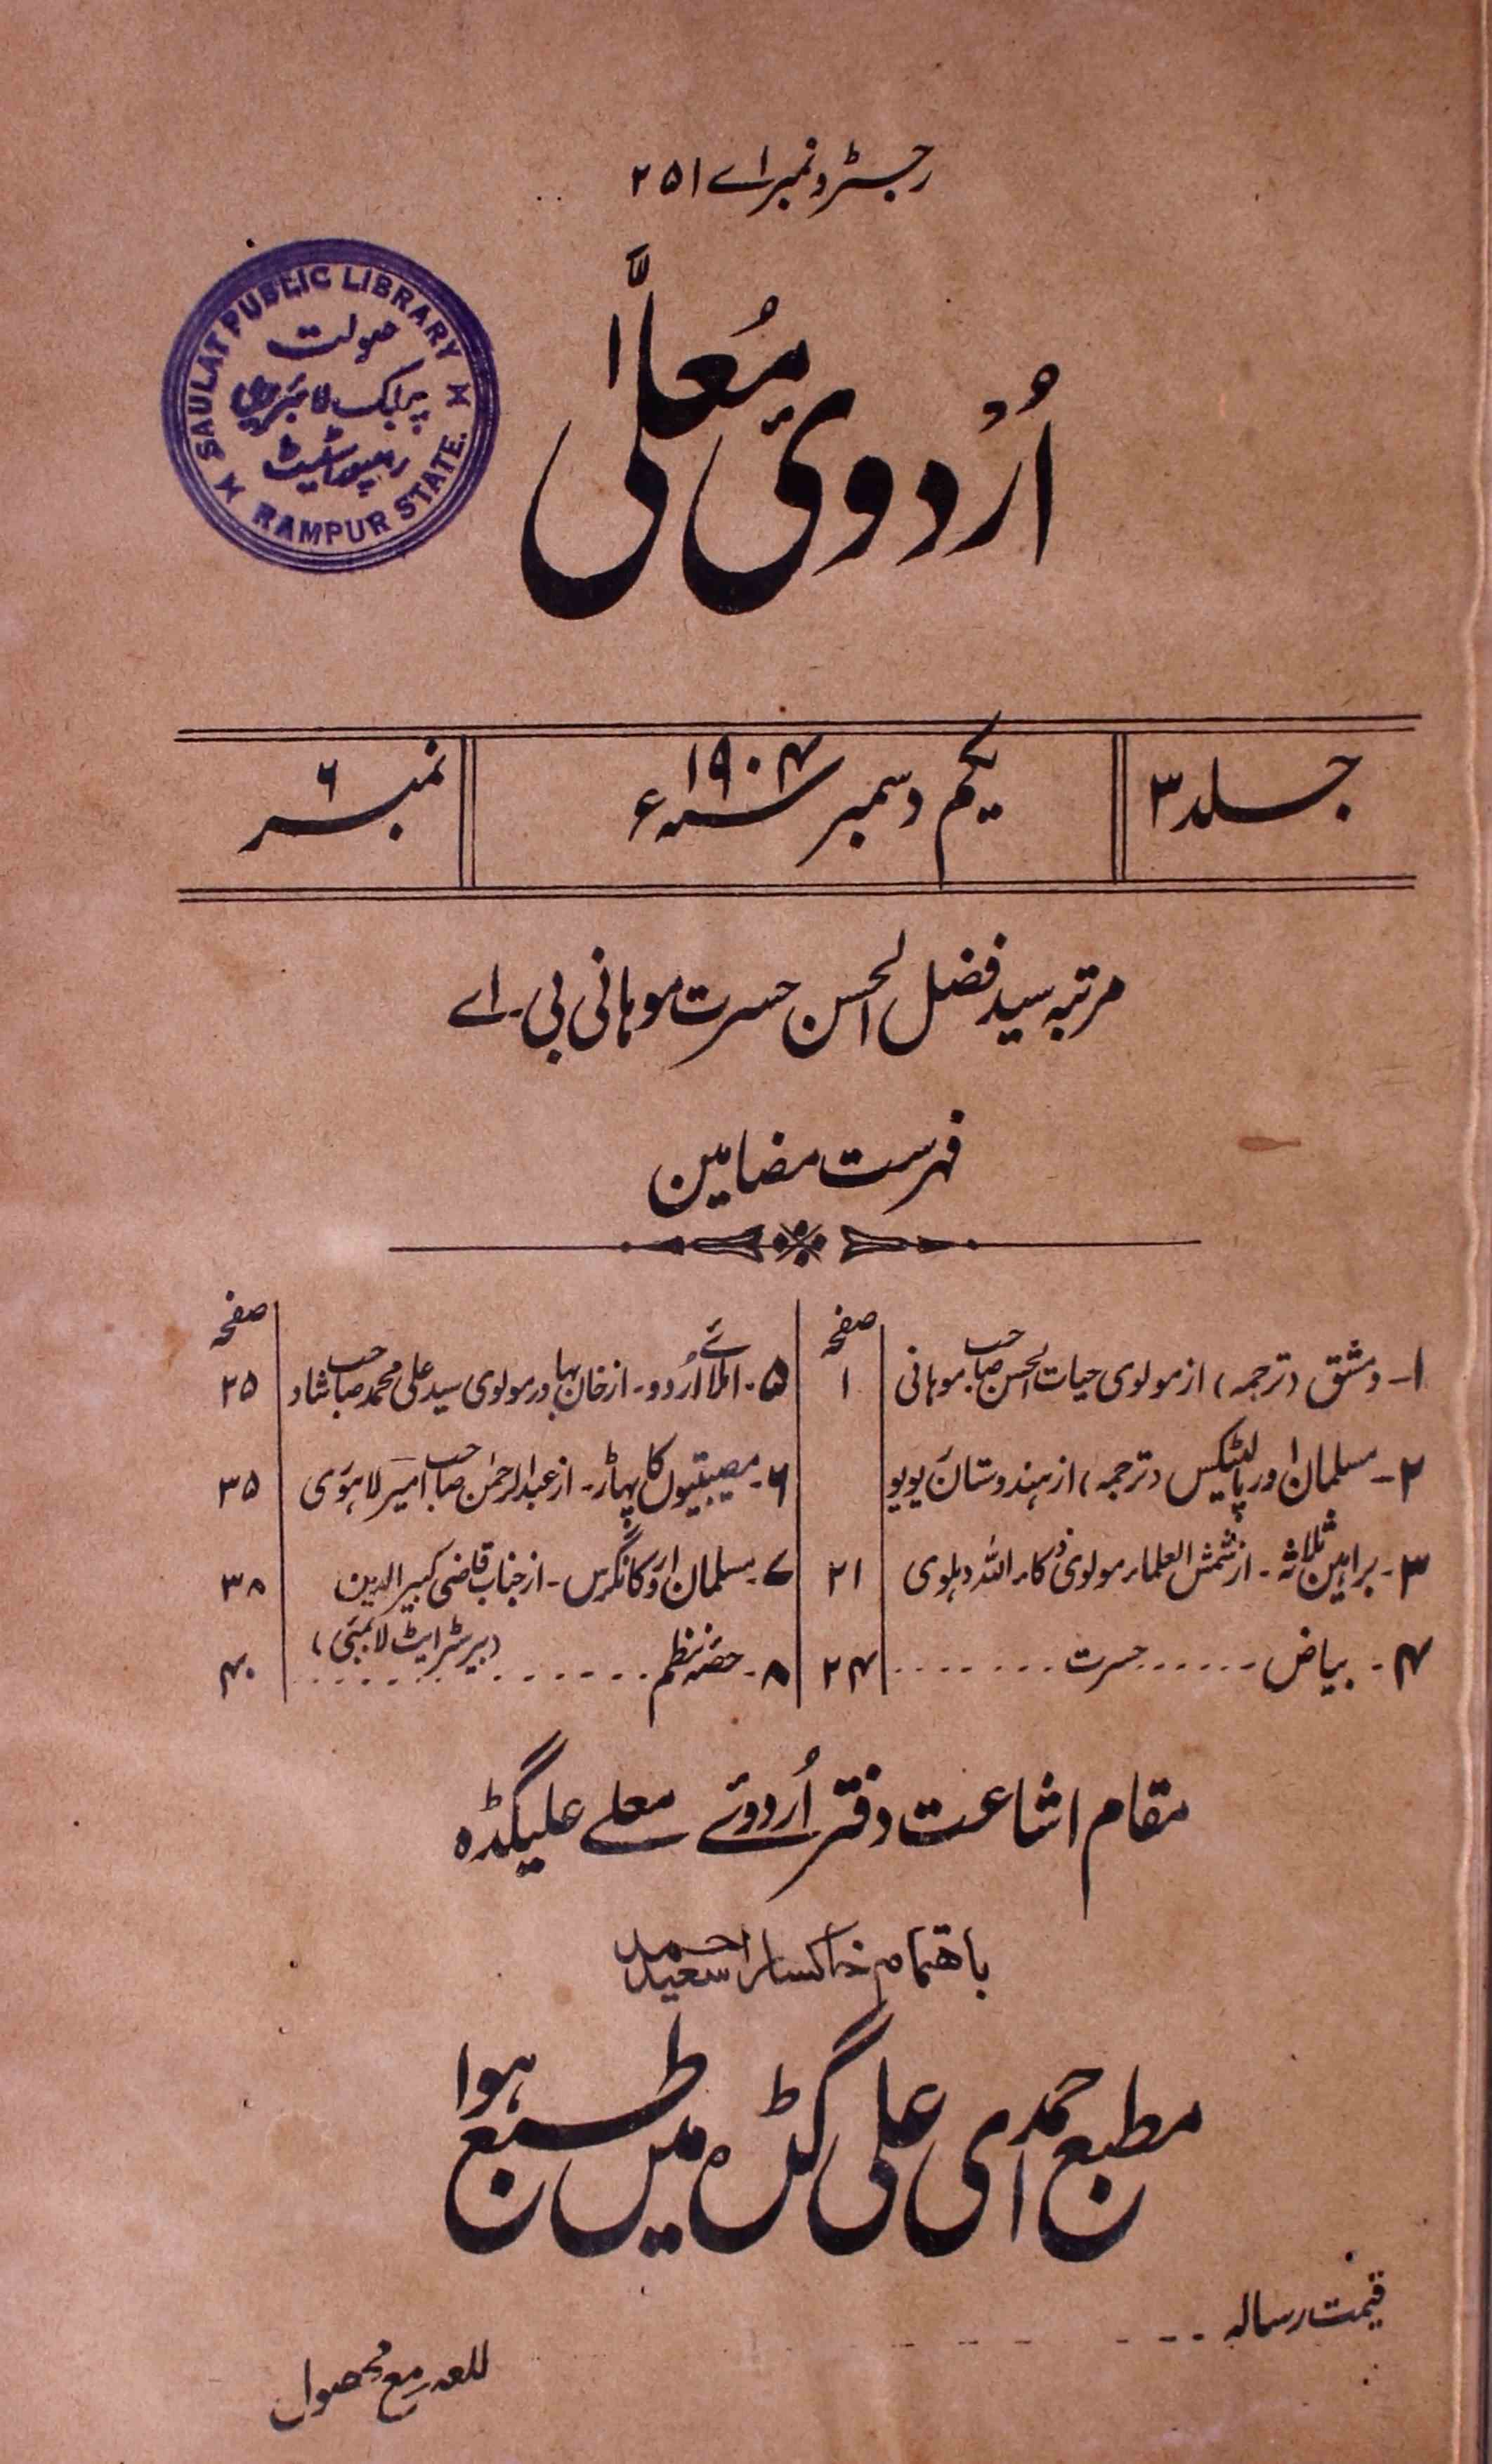 رجسٹرڈ نمبر اے ۲۵۱
SAULAT PUBLIC LIBRARY
صولت
پبلک لائبریری
رامپور اسٹیٹ
RAMPUR STATE.
اُردوئ مُعلّٰی
جلد ۳
یکم دسمبر سنہ ۱۹۰۴ء
نمبر ۶
مرتبہ سید فضل الحسن حسرت موہانی بی۔اے
فہرست مضامین
صفحہ
۱۔ دمشق (ترجمہ) از مولوی حیات الحسن صاحب موہانی ۱
۲۔ مسلمان اور پالٹیکس (ترجمہ) از ہندوستان ریویو
۳۔ براہین ثلاثہ۔ از شمش العلماء مولوی ذکاء اللہ دہلوی ۲۱
۴۔ بیاض ...... حسرت ........ ۲۴
صفحہ
۵۔ املائے اُردو۔ از خان بہادر مولوی سید علی محمد صاحب شاد ۲۵
۶۔ مصیبتیوں کا پہاڑ۔ از عبدالرحمٰن صاحب امیر لاہوری ۳۵
۷۔ مسلمان اور کانگرس۔ از جناب قاضی کبیر الدین ۳۸
(بیرسٹر ایٹ لا بمبئی)
۸۔ حصّہ نظم ............ ۴۰
مقام اشاعت دفتر اُردوئے معلے علیگڈہ
باہتمام خاکسار احمد سعید
مطبع احمدی علی گڑہ میں طبع ہوا
قیمت رسالہ
للعہ مع محصول